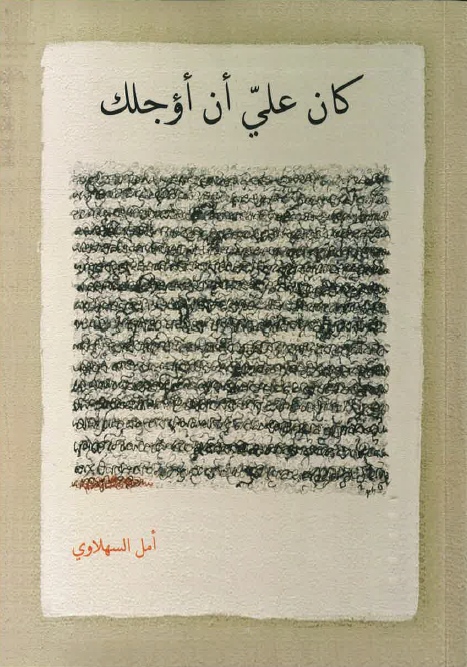 كان عليّ أن أؤجلك
أمل السهلاوي